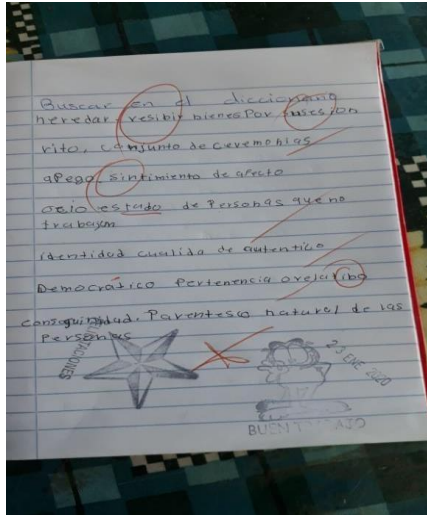 Buscar en el diccionario
heredar, resibir bienes Por susesion
rito, conjunto de ceremonias
apego, sintimiento de afecto
ocio estado de Personas que no
trabajan
identidad cualida de autentico
Democrático Pertenencia orelatibo
consaguinidad. Parentesco natural de las
Personas
FELICITACIONES
23 ENE 2020
BUEN TRABAJO